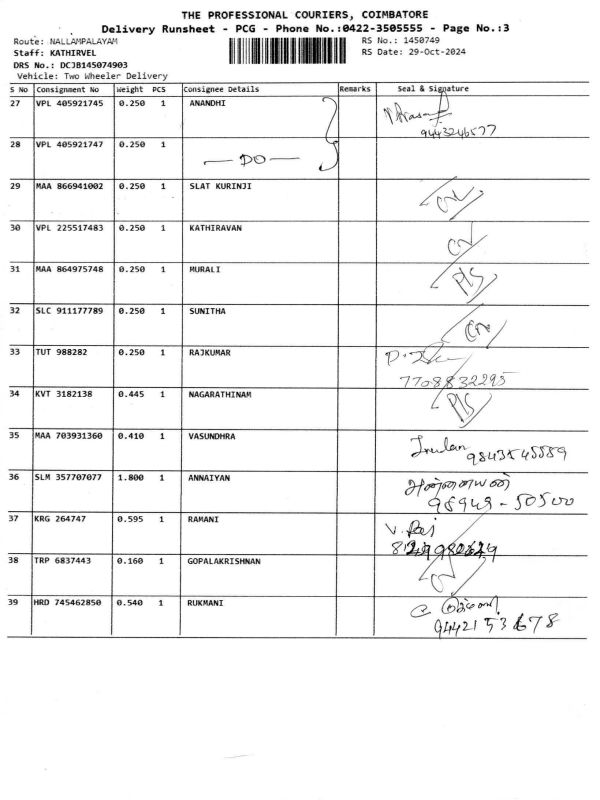 THE PROFESSIONAL COURIERS, COIMBATORE
Delivery Runsheet - PCG - Phone No.:0422-3505555 - Page No.:3
Route: NALLAMPALAYAM
RS No.: 1450749
Staff: KATHIRVEL
RS Date: 29-Oct-2024
DRS No.: DCJB145074903
Vehicle: Two Wheeler Delivery
S No Consignment No Weight PCS Consignee Details Remarks Seal & Signature
27 VPL 405921745 0.250 1 ANANDHI
9443246577
28 VPL 405921747 0.250 1
— DO —
29 MAA 866941002 0.250 1 SLAT KURINJI
30 VPL 225517483 0.250 1 KATHIRAVAN
31 MAA 864975748 0.250 1 MURALI
32 SLC 911177789 0.250 1 SUNITHA
33 TUT 988282 0.250 1 RAJKUMAR
7708832295
34 KVT 3182138 0.445 1 NAGARATHINAM
35 MAA 703931360 0.410 1 VASUNDHRA
36 SLM 357707077 1.800 1 ANNAIYAN அண்ணையன்
98949 - 50500
37 KRG 264747 0.595 1 RAMANI
38 TRP 6837443 0.160 1 GOPALAKRISHNAN
39 HRD 745462850 0.540 1 RUKMANI
9442153678